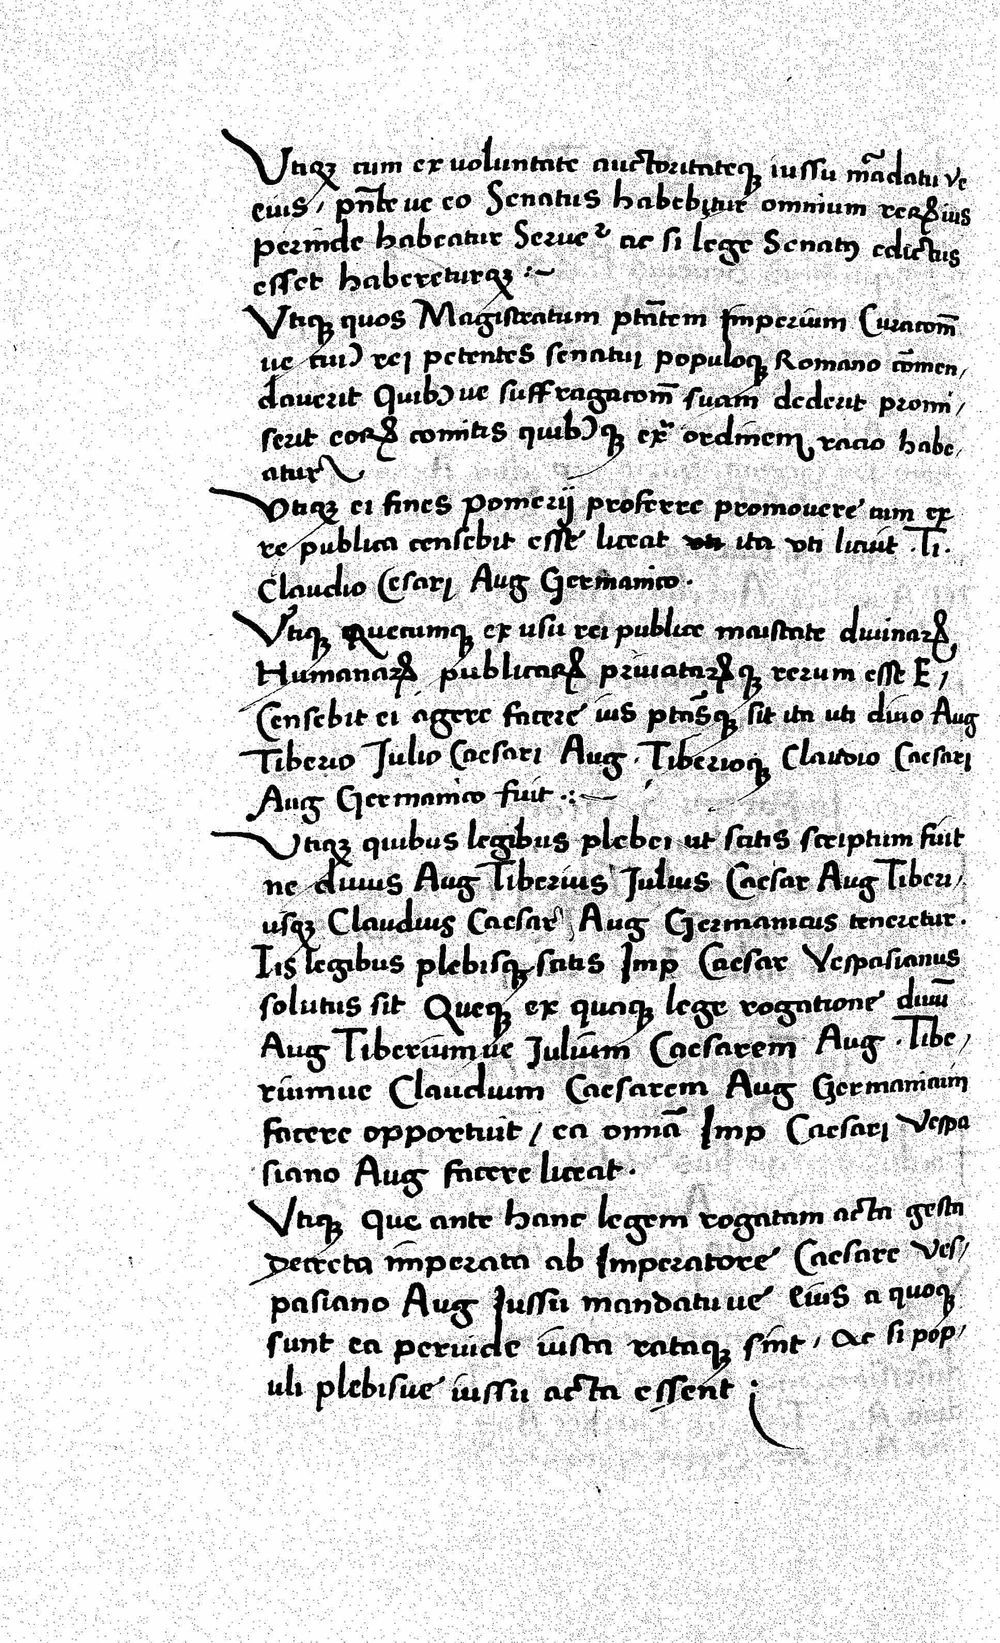 Utiqꝫ cum ex voluntate auctoritateqꝫ iussu mādatu ve
eius / pn̄te ue eo Senatus habebitur omnium reꝝ ius
perinde habeatur Serue ac si lege Senatꝰ edictus
esset habereturqꝫ :~
Utiqꝫ quos Magistratum ptātem Imperium Curacōm̄
ue cuiꝰ rei petentes senatui populoqꝫ Romano cōmen/
dauerit Quibꝰue suffragacōm̄ suam dederit promi/
serit eoꝝ comitis quibꝰqꝫ ex ordinem racio habe/
atur
Utiqꝫ ei fines pomerij proferre promouere cum ex
re publica censebit esse liceat ita uti licuit .Ti.
Claudio Cesari Aug Germanico.
Utiqꝫ Quecumqꝫ ex usu rei publice maistate diuinaꝝ
Humanaꝝ publicaꝝ priuataꝝqꝫ rerum esse E /
Censebit ei agere facere ius ptāsqꝫ sit ita uti diuo Aug
Tiberio Julio Caesari Aug . Tiberioqꝫ Claudio Caesari
Aug Germanico fuit .:~
Utiqꝫ quibus legibus plebei ut scitis scriptum fuit
ne diuus Aug Tiberius Julius Caesar Aug Tiberi/
usqꝫ Claudius Caesar Aug Germanicus teneretur.
Iis legibus plebisqꝫ scitis Imp Caesar Vespasianus
solutus sit Queqꝫ ex quaqꝫ lege rogatione diuū
Aug Tiberiumue Julium Caesarem Aug . Tibe/
riumue Claudium Caesarem Aug Germanicum
facere opportuit / ea omnā Imp Caesari Vespa
siano Aug facere liceat.
Utiqꝫ que ante hanc legem rogatam acta gesta
Decreta imperata ab Imperatore Caesare Ves/
pasiano Aug Jussu mandatuue eius a quoqꝫ
sunt ea perinde iusta rataqꝫ sint / ac si pop/
uli plebisue iussu acta essent